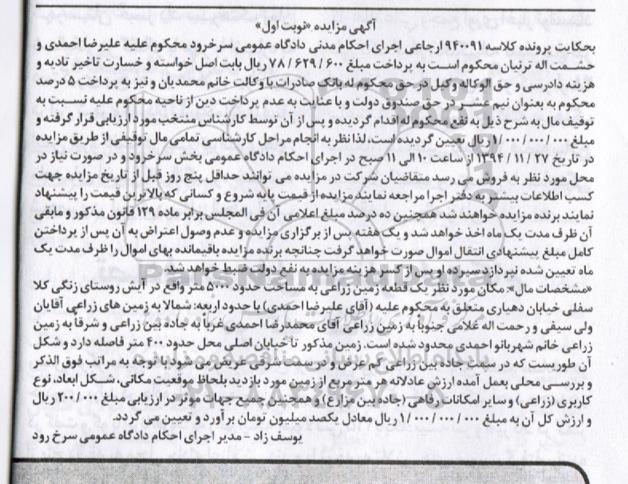 آگهی مزایده «نوبت اول»
بحکایت پرونده کلاسه ۹۴۰۰۹۱ ارجاعی اجرای احکام مدنی دادگاه عمومی سرخرود محکوم علیه علیرضا احمدی و
حشمت اله ترتیان محکوم است به پرداخت مبلغ ۷۸/۶۲۹/۶۰۰ ریال بابت اصل خواسته و خسارت تاخیر تادیه و
هزینه دادرسی و حق الوکاله وکیل در حق محکوم له بانک صادرات با وکالت خانم محمدیان و نیز به پرداخت ۵ درصد
محکوم به بعنوان نیم عشر در حق صندوق دولت و با عنایت به عدم پرداخت دین از ناحیه محکوم علیه نسبت به
توقیف مال به شرح ذیل به نفع محکوم له اقدام گردیده و پس از آن توسط کارشناس منتخب مورد ارزیابی قرار گرفته و
مبلغ ۱/۰۰۰/۰۰۰/۰۰۰ ریال تعیین گردیده است، لذا نظر به انجام مراحل کارشناسی تمامی مال توقیفی از طریق مزایده
در تاریخ ۱۳۹۴/۱۱/۲۷ از ساعت ۱۰ الی ۱۱ صبح در اجرای احکام دادگاه عمومی بخش سرخرود و در صورت نیاز در
محل مورد نظر به فروش می رسد متقاضیان شرکت در مزایده می توانند حداقل پنج روز قبل از تاریخ مزایده جهت
کسب اطلاعات بیشتر به دفتر اجرا مراجعه نمایند مزایده از قیمت پایه شروع و کسانی که بالاترین قیمت را پیشنهاد
نمایند برنده مزایده خواهند شد همچنین ده درصد مبلغ اعلامی آن فی المجلس برابر ماده ۱۲۹ قانون مذکور و مابقی
آن ظرف مدت یک ماه اخذ خواهد شد و یک هفته پس از برگزاری مزایده و عدم وصول اعتراض به آن پس از پرداختن
کامل مبلغ پیشنهادی انتقال اموال صورت خواهد گرفت چنانچه برنده مزایده باقیمانده بهای اموال را ظرف مدت یک
ماه تعیین شده نپردازد سپرده او پس از کسر هزینه مزایده به نفع دولت ضبط خواهد شد.
«مشخصات مال»: مکان مورد نظر یک قطعه زمین زراعی به مساحت حدود ۵۰۰۰ متر واقع در آیش روستای زنگی کلا
سفلی خیابان دهیاری متعلق به محکوم علیه (آقای علیرضا احمدی) با حدود اربعه: شمالا به زمین های زراعی آقایان
ولی سیفی و رحمت اله غلامی جنوباً به زمین زراعی آقای محمدرضا احمدی غرباً به جاده بین زراعی و شرقاً به زمین
زراعی خانم شهربانو احمدی محدود شده است. زمین مذکور تا خیابان اصلی محل حدود ۴۰۰ متر فاصله دارد و شکل
آن طوریست که در سمت جاده بین زراعی کم عرض و در سمت شرقی عریض می شود با توجه به مراتب فوق الذکر
و بررسی محلی بعمل آمده ارزش عادلانه هر متر مربع از زمین مورد بازدید بلحاظ موقعیت مکانی، شکل ابعاد، نوع
کاربری (زراعی) و سایر امکانات رفاهی (جاده بین مزارع) و همچنین جمیع جهات موثر در ارزیابی مبلغ ۲۰۰/۰۰۰ ریال
و ارزش کل آن به مبلغ ۱/۰۰۰/۰۰۰/۰۰۰ ریال معادل یکصد میلیون تومان برآورد و تعیین می گردد.
یوسف زاد - مدیر اجرای احکام دادگاه عمومی سرخ رود